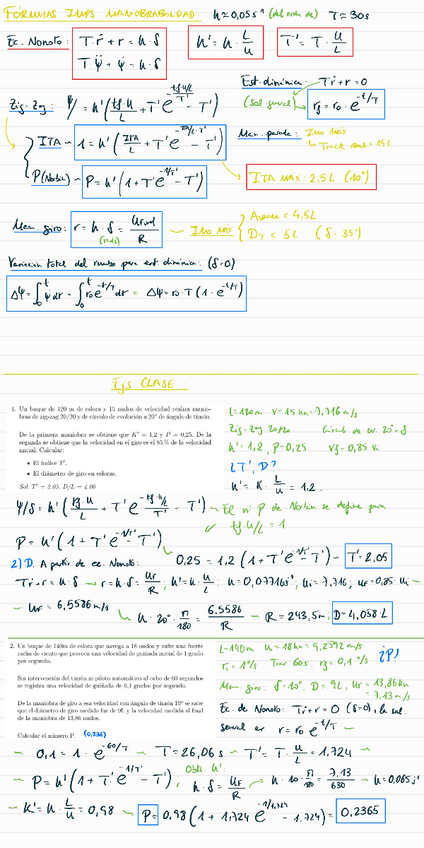 FÓRMULAS IMPS MANIOBRABILIDAD: K≈0,05 s⁻¹ (del orden de) T≈30s
Ec. Nomoto: Tṙ + r = K·δ
Tψ̈ + ψ̇ = K·δ
K' = K·L/u
T' = T·u/L
Est. dinámica: Tṙ + r = 0
(Sol general) r = r₀·e^(-t/T)
Zig-Zag:
ITA
P(Norrbin) P = K'(1 + T'e^(-1/T') - T')
ITA MAX: 2.5L (10°)
Man. giro: r = K·δ = / R
IMO MAX Avance < 4.5L
(δ = 35°)
Variación total del rumbo para est. dinámica: (δ=0)
Δψ = ∫₀ᵗ ψ̇ dt = ∫₀ᵗ r₀e^(-t/T) dt = Δψ = r₀·T(1 - e^(-t/T))
Ejs CLASE:
1. Un buque de 120 m de eslora y 15 nudos de velocidad realiza maniobras de zig-zag 20/20 y de círculo de evolución a 20° de ángulo de timón.
De la primera maniobra se obtiene que K' = 1,2 y P = 0,25. De la segunda se obtiene que la velocidad en el giro es el 85 % de la velocidad inicial. Calcular:
• El índice T'.
• El diámetro de giro en esloras.
Sol: T' = 2.05, D/L = 4.06
L=120m V=15 kn = 7,716 m/s
Zig-Zag 20/20
K'=1,2, P=0,25
¿T', D?
K' = K·L/u = 1.2
El nº P de Norrbin se define para
P = K'(1 + T'e^(-1/T') - T')
0,25 = 1,2(1 + T'e^(-1/T') - T') T' = 2,05
2) D. A partir de ec. Nomoto:
6,5586 m/s K·20°·π/180 = 6,5586/R R = 243,5m, D = 4,058·L
2. Un buque de 140m de eslora que navega a 18 nudos y sufre una fuerte racha de viento que provoca una velocidad de guiñada inicial de 1 grado por segundo.
Sin intervención del timón ni piloto automático al cabo de 60 segundos se registra una velocidad de guiñada de 0,1 grados por segundo.
De la maniobra de giro a esa velocidad con ángulo de timón 10° se sabe que el diámetro de giro medido fue de 9L y la velocidad medida al final de la maniobra de 13,86 nudos.
Calcular el número P. (0,236)
L=140m u=18kn = 9,2592 m/s
1°/s Tras 60s, 0,1°/s
¿P?
Man giro: δ=10°, D=9L, 13,86kn
= 7.13 m/s
Ec. de Nomoto: Tṙ + r = 0 (δ=0), la sol.
general es r = r₀e^(-t/T)
0,1 = 1·e^(-60/T) T = 26,06 s T' = T·u/L = 1.724
P = K'(1 + T'e^(-1/T') - T'), K·10·π/180 = 7,13/630 K=0,065 s⁻¹
K' = K·L/u = 0,98 P = 0,98(1 + 1.724e^(-1/1.724) - 1.724) = 0,2365